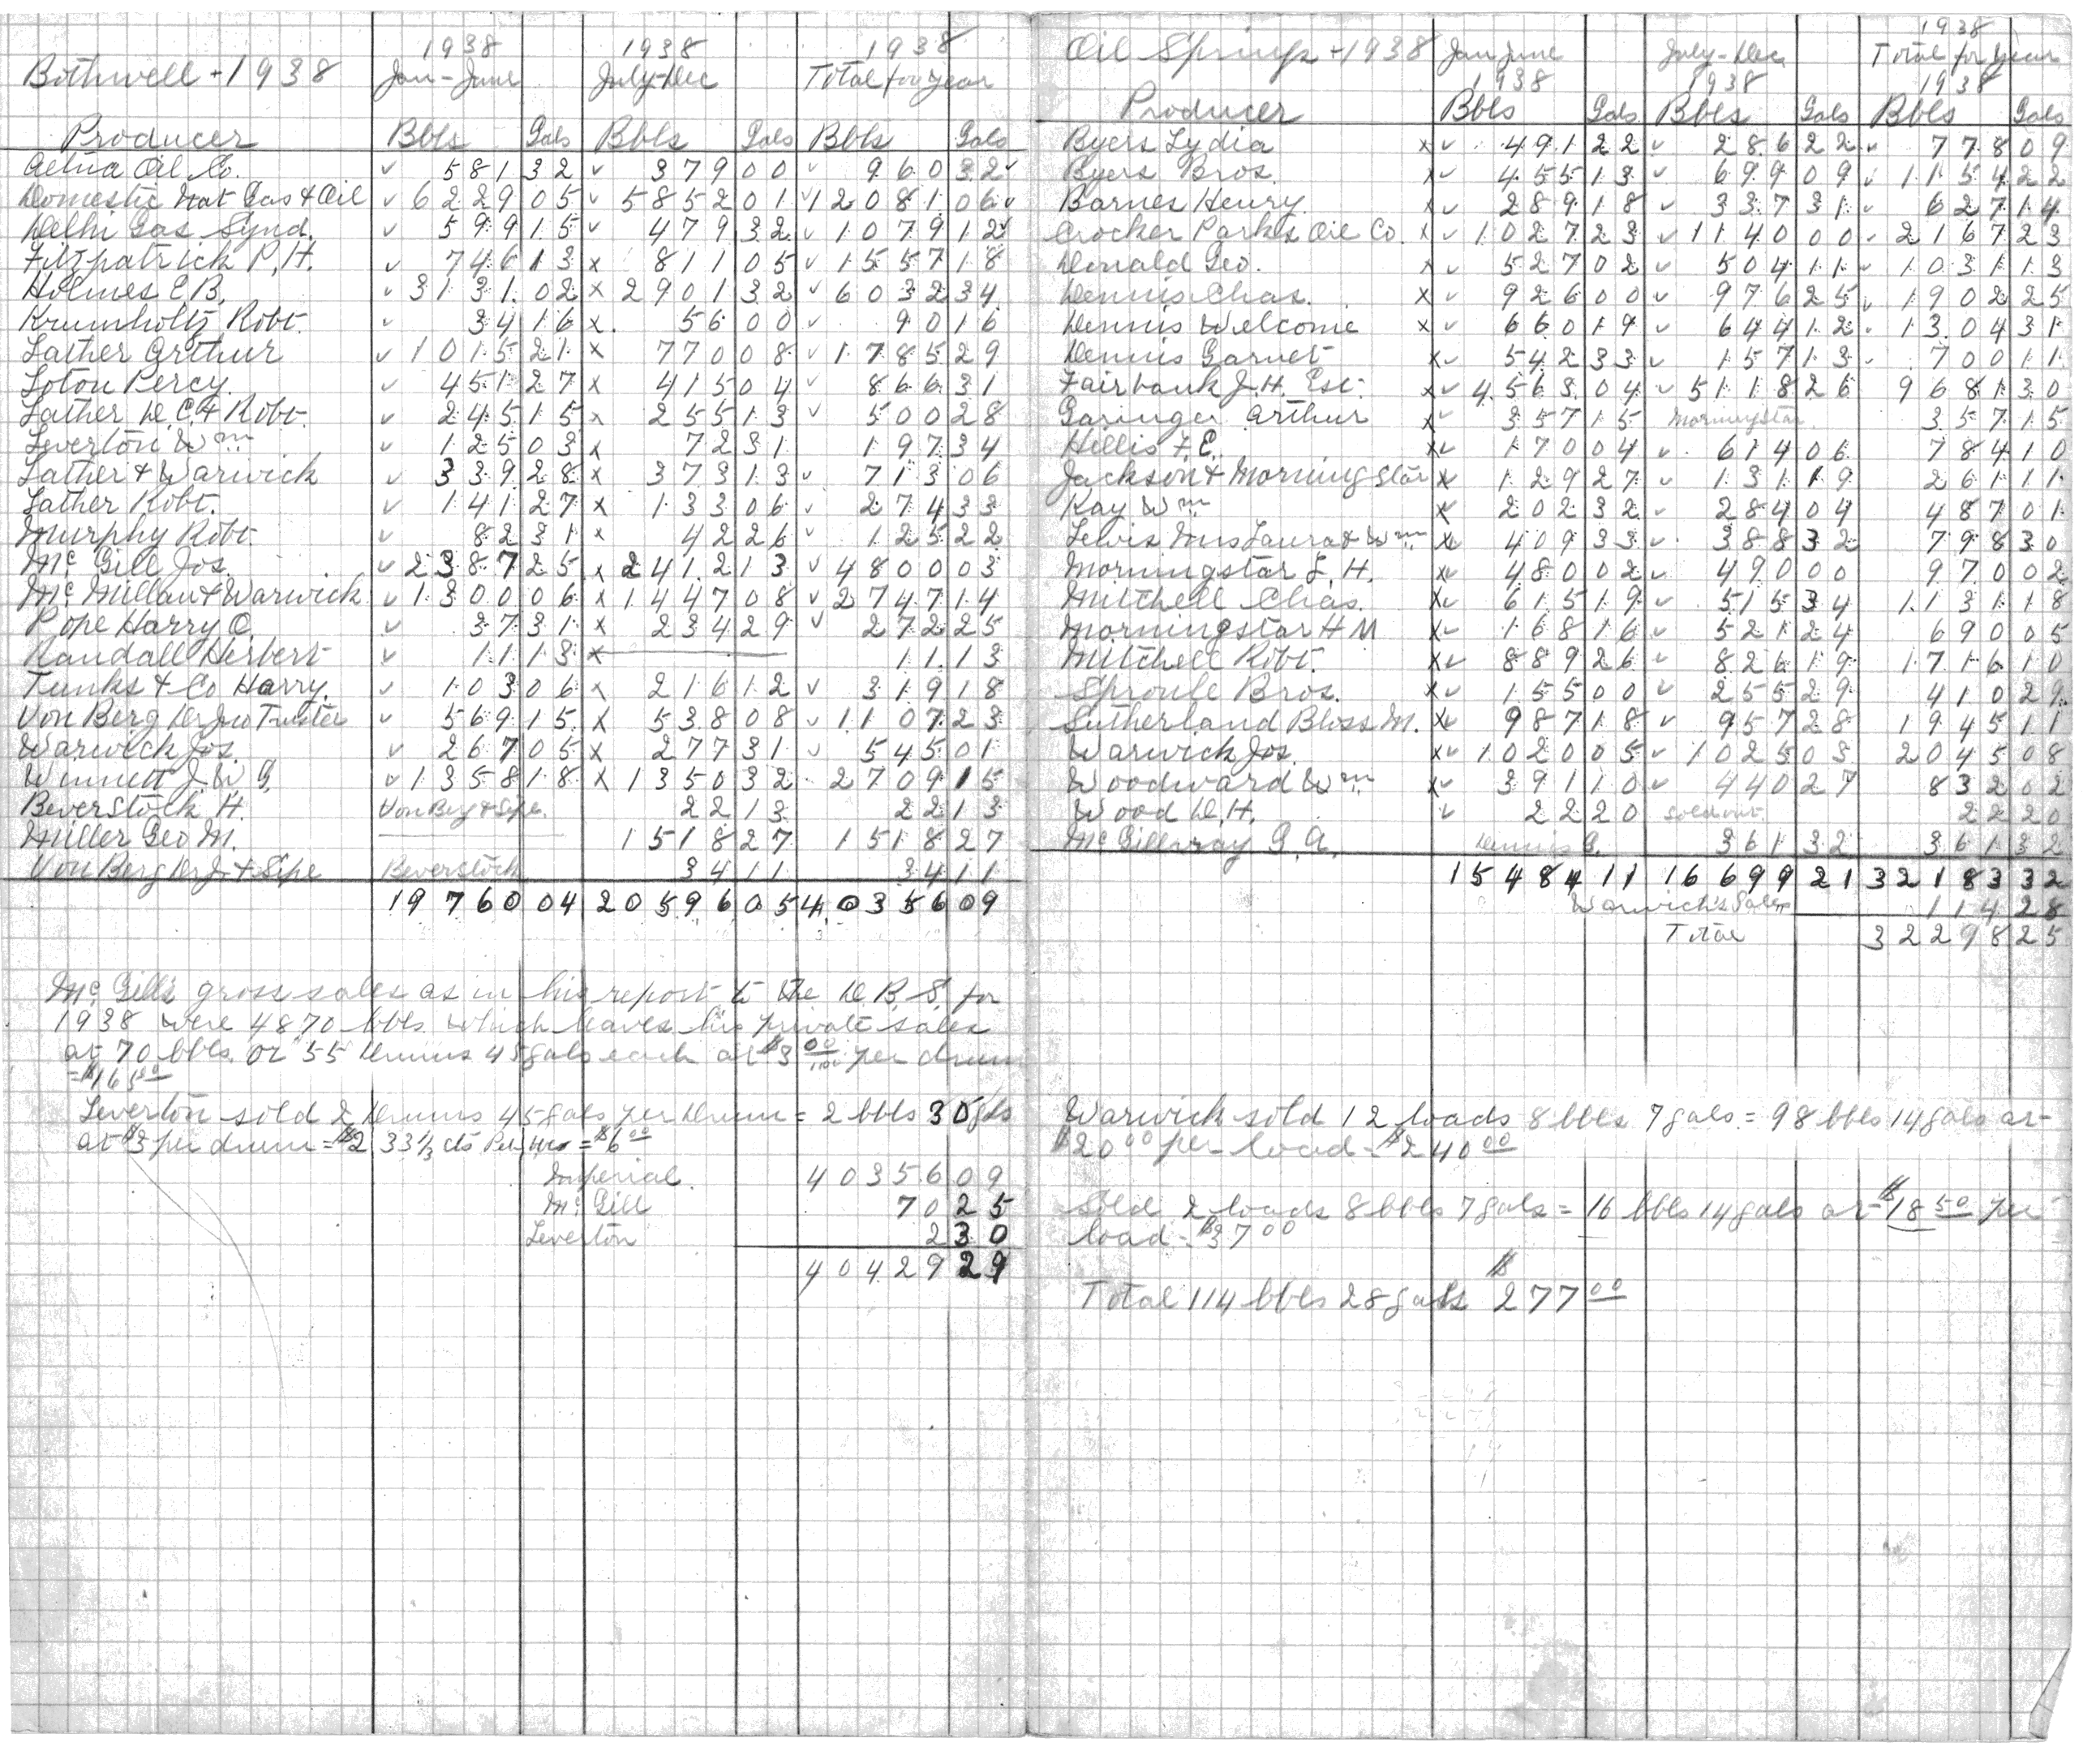 Bothwell - 1938
1938 1938 1938
Jan-June July-Dec Total for year
Producer Bbls Gals Bbls Gals Bbls Gals
Aetna Oil Co. ✓ 581 32 ✓ 379 00 ✓ 960 32 ✓
Domestic Nat Gas & Oil ✓ 6229 05 ✓ 5852 01 ✓ 12081 06 ✓
Delhi Gas Synd. ✓ 599 15 ✓ 479 32 ✓ 1079 12 ✓
Fitzpatrick P.H. ✓ 746 13 x 811 05 ✓ 1557 18
Holmes E.B. ✓ 3131 02 x 2901 32 ✓ 6032 34
Krumholtz Robt. ✓ 34 16 x 56 00 ✓ 90 16
Lather Arthur ✓ 1015 21 x 770 08 ✓ 1785 29
Loton Percy ✓ 451 27 x 415 04 ✓ 866 31
Lather D.C. & Robt. ✓ 245 15 x 255 13 ✓ 500 28
Leverton Wm ✓ 125 03 x 72 31 197 34
Lather & Warwick ✓ 339 28 x 373 13 ✓ 713 06
Lather Robt. ✓ 141 27 x 133 06 ✓ 274 33
Murphy Robt. ✓ 82 31 x 42 26 ✓ 125 22
Mc Gill Jos. ✓ 2387 25 x 2412 13 ✓ 4800 03
Mc Millan & Warwick ✓ 1300 06 x 1447 08 ✓ 2747 14
Pope Harry O. ✓ 37 31 x 234 29 ✓ 272 25
Randall Herbert ✓ 11 13 x 11 13
Tunks & Co Harry. ✓ 103 06 x 216 12 ✓ 319 18
Von Berg Dr Jno Trustee ✓ 569 15 x 538 08 ✓ 1107 23
Warwick Jos. ✓ 267 05 x 277 31 ✓ 545 01
Winnett J.W.G. ✓ 1358 18 x 1350 32 2709 15
Beverstock H. Von Berg & Sipe. 22 13 22 13
Miller Geo M. 1518 27 1518 27
Von Berg Dr J. & Sipe Beverstock 34 11 34 11
19760 04 20596 05 40356 09
McGill's gross sales as in his report to the D.B.S. for
1938 were 4870 bbls. which leaves his private sales
at 70 bbls. or 55 Drums 45 gals each at $3 00/100 per drum
= $165 00
Leverton sold 2 Drums 45 gals per Drum = 2 bbls 30 gls
at $3 per drum = $2 33 1/3 cts Per = $6 00
Imperial. 40356 09
Mc Gill 70 25
Leverton 2 30
40429 29
Oil Springs - 1938 Jan June July-Dec Total for year
1938 1938 1938 1938
Producer Bbls Gals Bbls Gals Bbls Gals
Byers Lydia x ✓ 491 22 ✓ 286 22 ✓ 778 09
Byers Bros. x ✓ 455 13 ✓ 699 09 ✓ 1154 22
Barnes Henry x ✓ 289 18 ✓ 337 31 ✓ 627 14
Crocker Parks Oil Co. x ✓ 1027 23 ✓ 1140 00 ✓ 2167 23
Donald Geo. x ✓ 527 02 ✓ 504 11 ✓ 1031 13
Dennis Chas. x ✓ 926 00 ✓ 976 25 ✓ 1902 25
Dennis Welcome x ✓ 660 19 ✓ 644 12 ✓ 1304 31
Dennis Garnet x ✓ 542 33 ✓ 157 13 ✓ 700 11
Fairbank J.H. Est. x ✓ 4563 04 ✓ 5118 26 9681 30
Garinger Arthur x ✓ 357 15 Morningstar. 357 15
Hillis F.E. x ✓ 170 04 ✓ 614 06 784 10
Jackson & Morningstar x 129 27 ✓ 131 19 261 11
Kay Wm x 202 32 ✓ 284 04 487 01
Lewis Mrs Laura & Wm x 409 33 ✓ 388 32 798 30
Morningstar L.H. x ✓ 480 02 ✓ 490 00 970 02
Mitchell Chas. x ✓ 615 19 ✓ 515 34 1131 18
Morningstar H M x ✓ 168 16 ✓ 521 24 690 05
Mitchell Robt. x ✓ 889 26 ✓ 826 19 1716 10
Sproule Bros. x ✓ 155 00 ✓ 255 29 410 29
Sutherland Bloss M. x ✓ 987 18 ✓ 957 28 1945 11
Warwick Jos. x ✓ 1020 05 ✓ 1025 03 2045 08
Woodward Wm x ✓ 391 10 ✓ 440 27 832 02
Wood D.H. ✓ 22 20 Sold out. 22 20
McGillivray G.A. Dennis G. 361 32 361 32
15484 11 16699 21 32183 32
Warwick's Sales 114 28
Total 32298 25
Warwick sold 12 loads 8 bbls 7 gals. = 98 bbls 14 gals at
$20 00 per load = $240 00
Sold 2 loads 8 bbls 7 gals = 16 bbls 14 gals at $18 50 per
load = $37 00
Total 114 bbls 28 gals $277 00